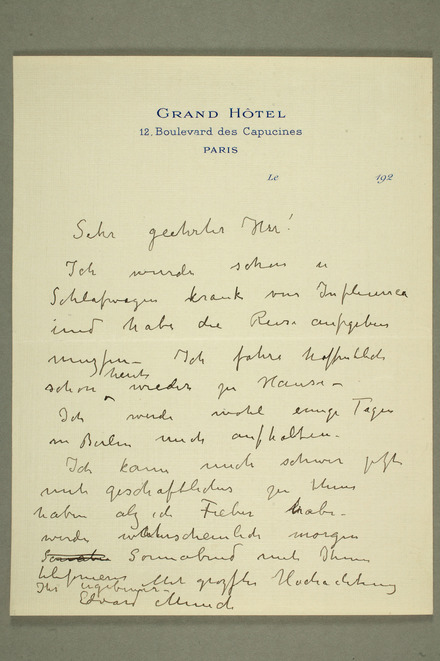 GRAND HÔTEL
12, Boulevard des Capucines
PARIS
Le 192
Sehr geehrter Herr!
Ich wurde schon in
Schlafwagen krank von Influenca
und habe die Reise aufgeben
müssen – Ich fahre hoffentlich
heute
schon wieder zu Hause –
Ich werde wohl einige Tagen
in Berlin mich aufhalten –
Ich kann mich schwer jetzt
mit geschäftliches zu thuns
haben als ich Fieber habe –
werde wahrscheinlich morgen
Sonnabend mit Ihnen
Mit grösster Hochachtung
Ihr
Edvard Munch